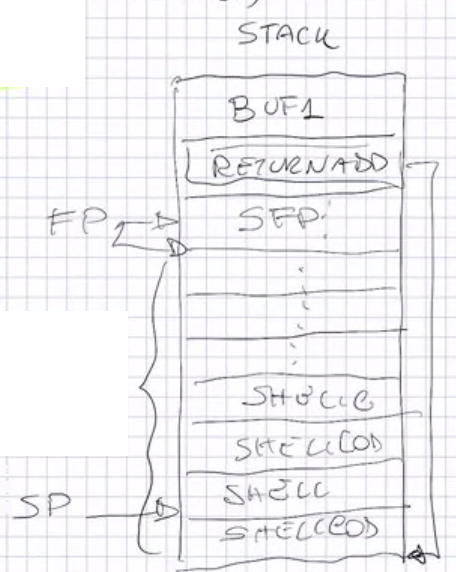 STACK
BUF1
RETURNADD
FP
SFP
SHELLC
SHELLCOD
SHELL
SP
SHELLCOD